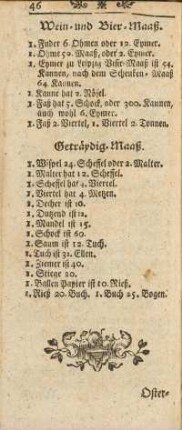 46
Wein- und Bier-Maaß.
1. Fuder 6. Ohmen oder 12. Eymer.
1. Ohme 52. Maaß, oder 2. Eymer.
1. Eymer zu Leipzig Visir-Maaß ist 54.
Kannen, nach dem Schenken-Maaß
64. Kannen.
1. Kanne hat 2. Nösel.
1. Faß hat 5. Schock, oder 300. Kannen,
auch wohl 6. Eymer.
1. Faß 2. Viertel, 1. Viertel 2. Tonnen.
Geträydig-Maaß.
1. Wispel 24. Scheffel oder 2. Malter.
1. Malter hat 12. Scheffel.
1. Scheffel hat 4. Viertel.
1. Viertel hat 4. Metzen.
1. Decher ist 10.
1. Dutzend ist 12.
1. Mandel ist 15.
1. Schock ist 60
1. Saum ist 12. Tuch.
1. Tuch ist 32. Ellen.
1. Ziemer ist 40.
1. Stiege 20.
1. Ballen Papier ist 10. Rieß.
1. Rieß 20. Buch. 1. Buch 25. Bogen.
Oster-